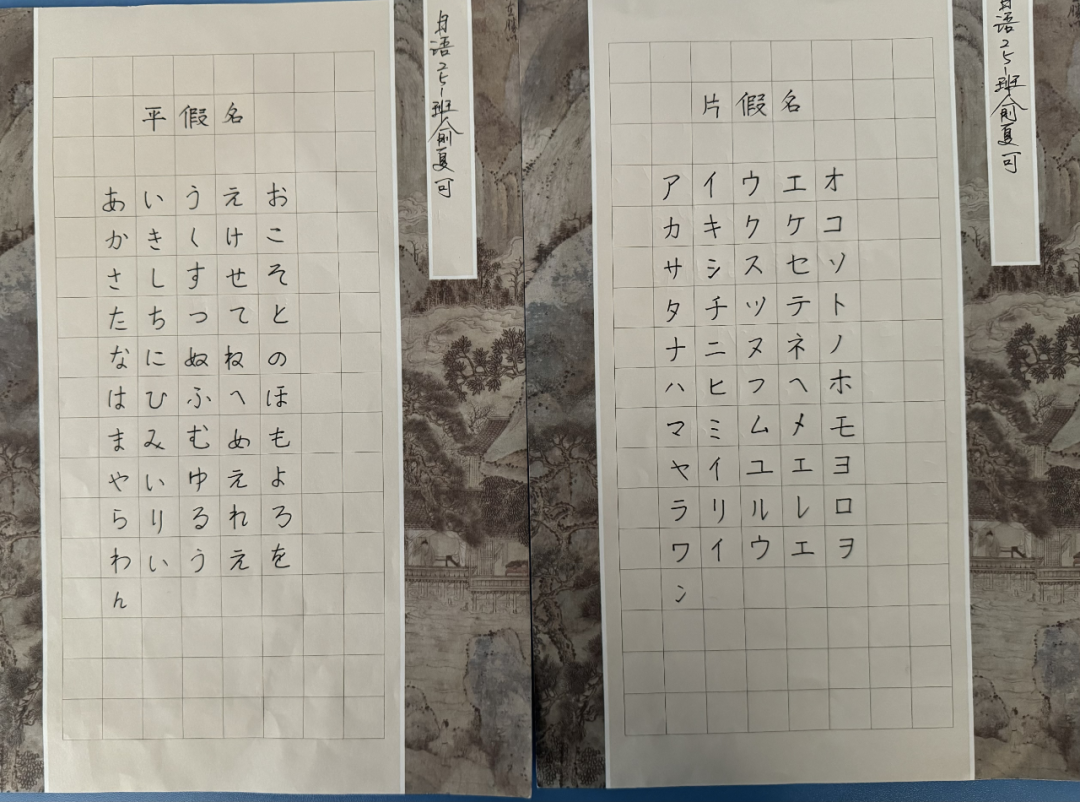 平假名
あいうえお
かきくけこ
さしすせそ
たちつてと
なにぬねの
はひふへほ
まみむめも
やいゆえよ
らりるれろ
わいうえを
ん
日语25-班俞夏可
片假名
アイウエオ
カキクケコ
サシスセソ
タチツテト
ナニヌネノ
ハヒフヘホ
マミムメモ
ヤイユエヨ
ラリルレロ
ワイウエヲ
ン
日语25-班俞夏可